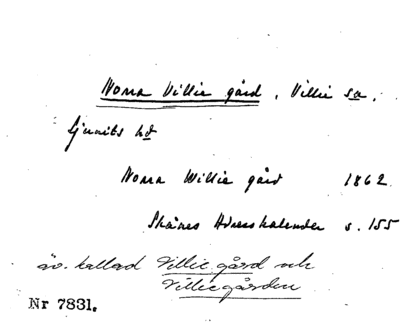 Norra Villie gård, Villie sn,
Ljunits hd
Norra Willie gård 1862
Skånes Adresskalender s. 155
äv. kallad Villie gård och
Villiegården
Nr 7831.